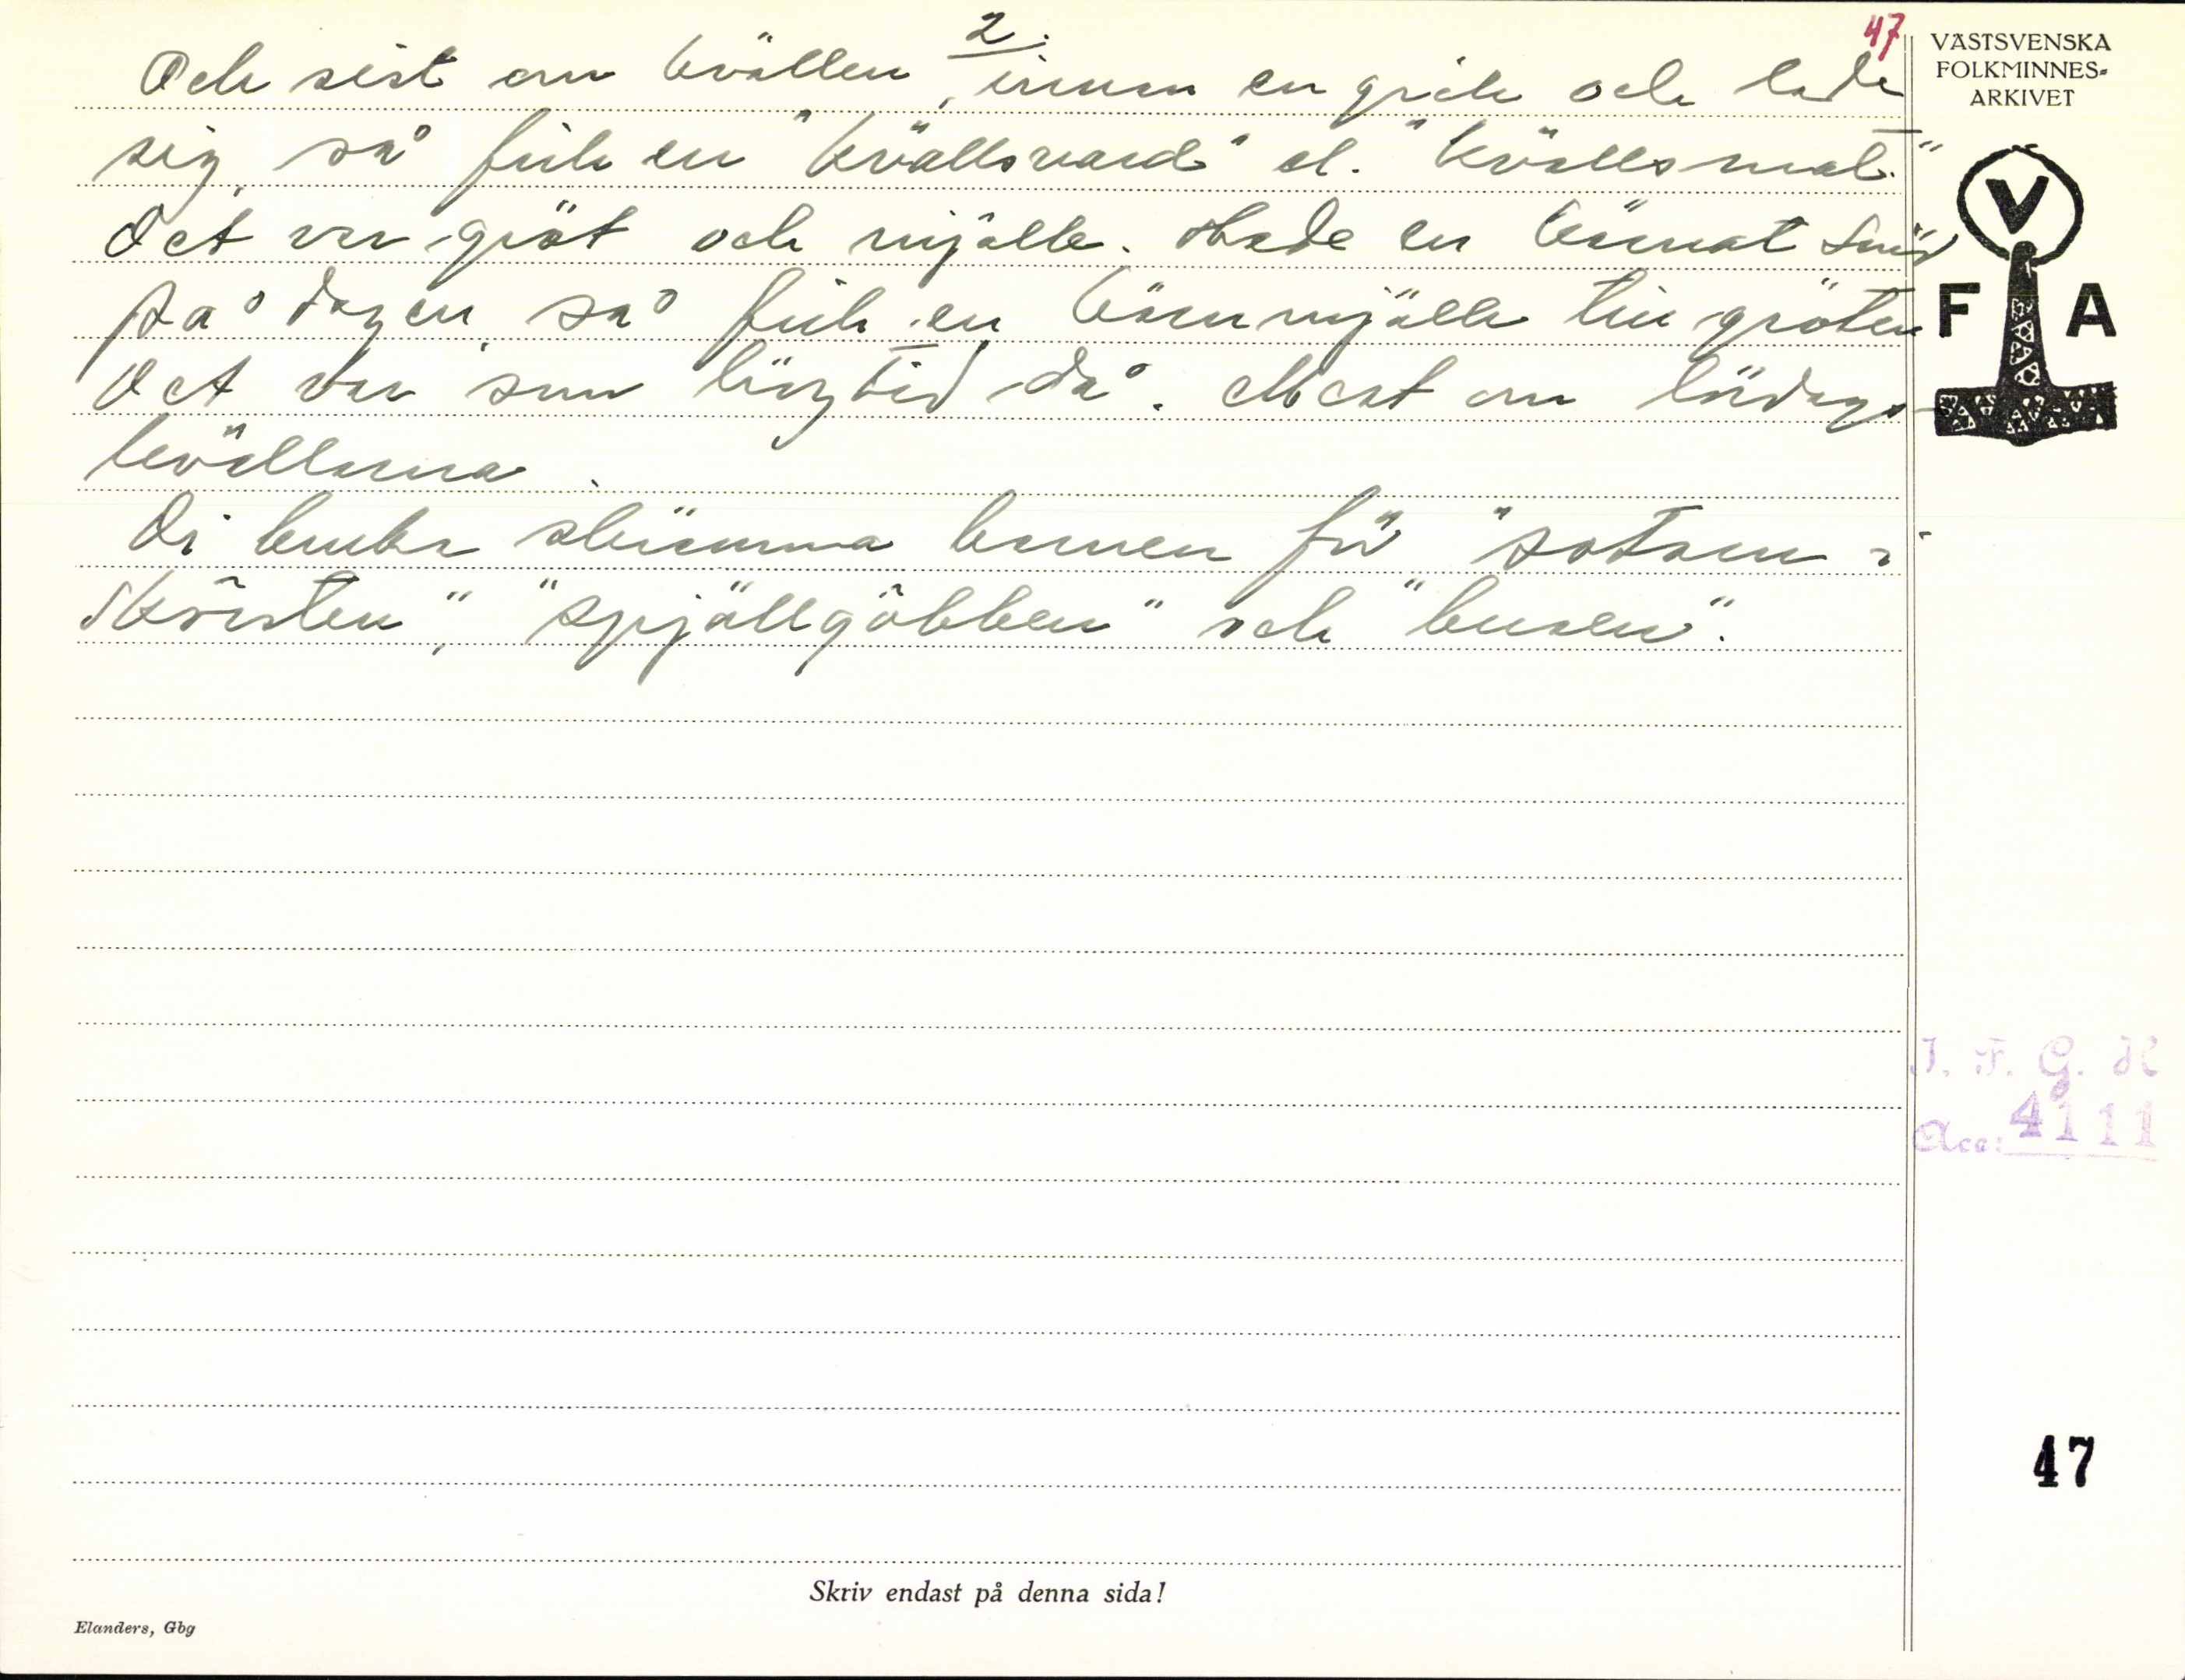 2.
47
Och sist om kvällen, innan en gick och lade
sig, så fick en "kvällsvard" el. "kvällsmat".
Det var gröt och mjölk. Hade en kärnat smör
på dagen, så fick en kärnmjölk till gröten
Det var som högtid då. Mest om lördags-
kvällarna.
Di bruka skrämma barnen för "sotarn i
skorsten", "spjällgöbben" och "busen".
VÄSTSVENSKA
FOLKMINNES-
ARKIVET
V
F A
I. F. G. H
Acc: 4111
47
Skriv endast på denna sida!
Elanders, Gbg